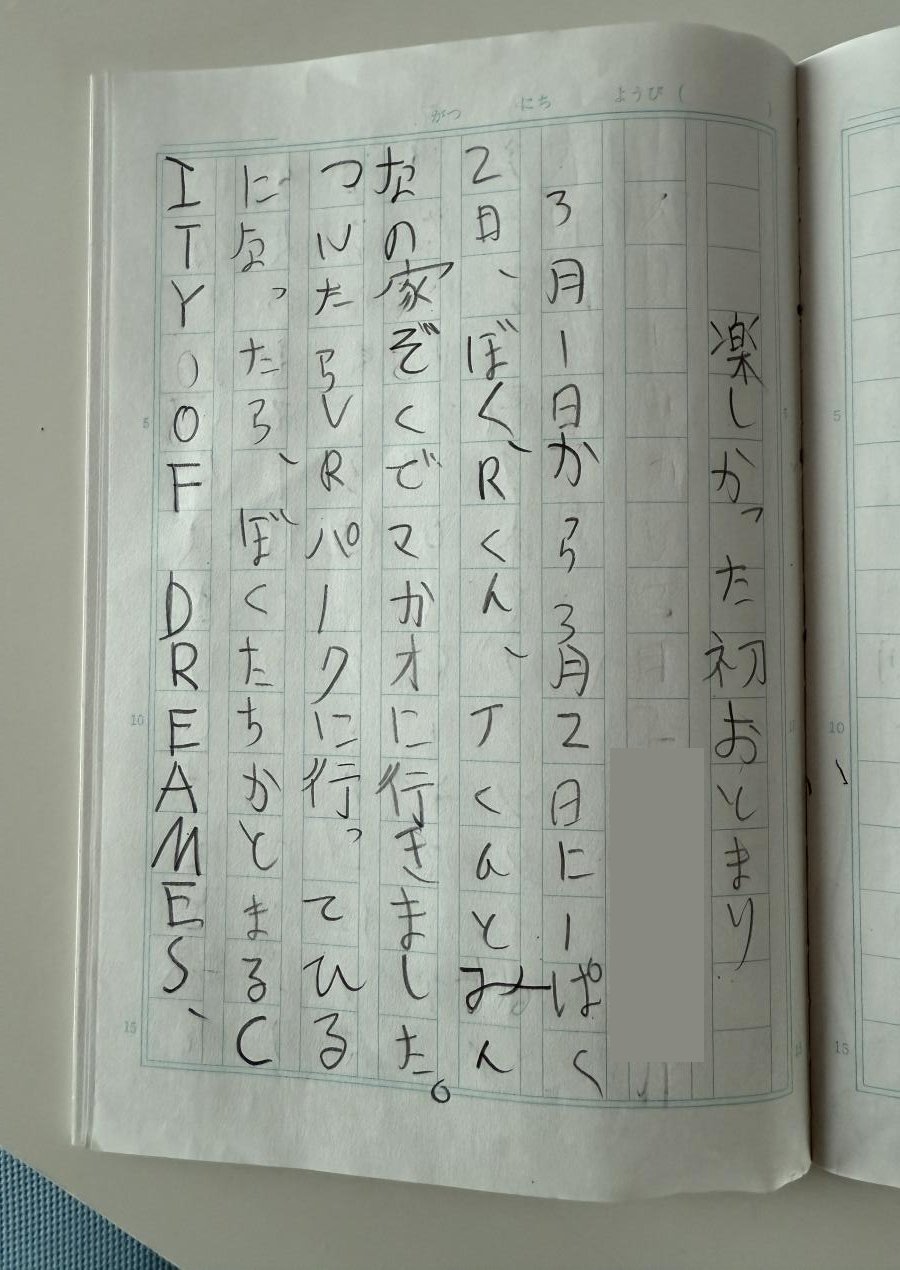 がつ にち ようび ( )
楽しかった初おとまり
3月1日から3月2日に1ぱく
2日、ぼく、Rくん、Tくんとみん
なの家ぞくでマかオに行きました。
ついたらVRパークに行ってひる
になったら、ぼくたちかとまるC
ITY OF DREAMES、
5
10
15
5
10
15